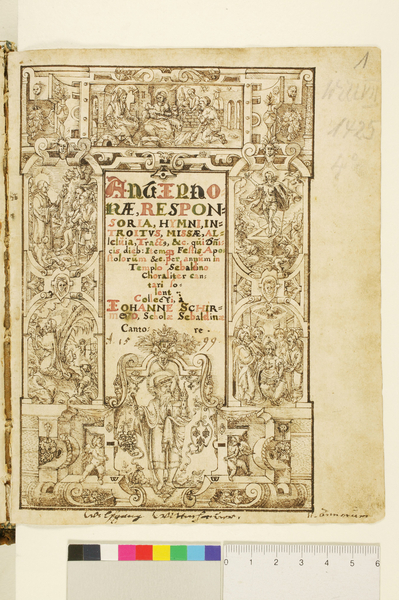 1
ANTIPHO-
RÆ, RESPON-
SORIA, HYMNI, IN-
TROITVS, MISSÆ, AL-
leluia, Tractg, &c. qui Dñi-
cis dieb: Item q Festis Apo-
stolorum &c. per annum in
Templo Sebaldino
Choraliter can-
tari so-
lent :
Collecti, à
IOHANNE SCHIR-
MERO, Scholæ Sebaldinæ
Canto- re.
A. 15 99
0 1 2 3 4 5 6